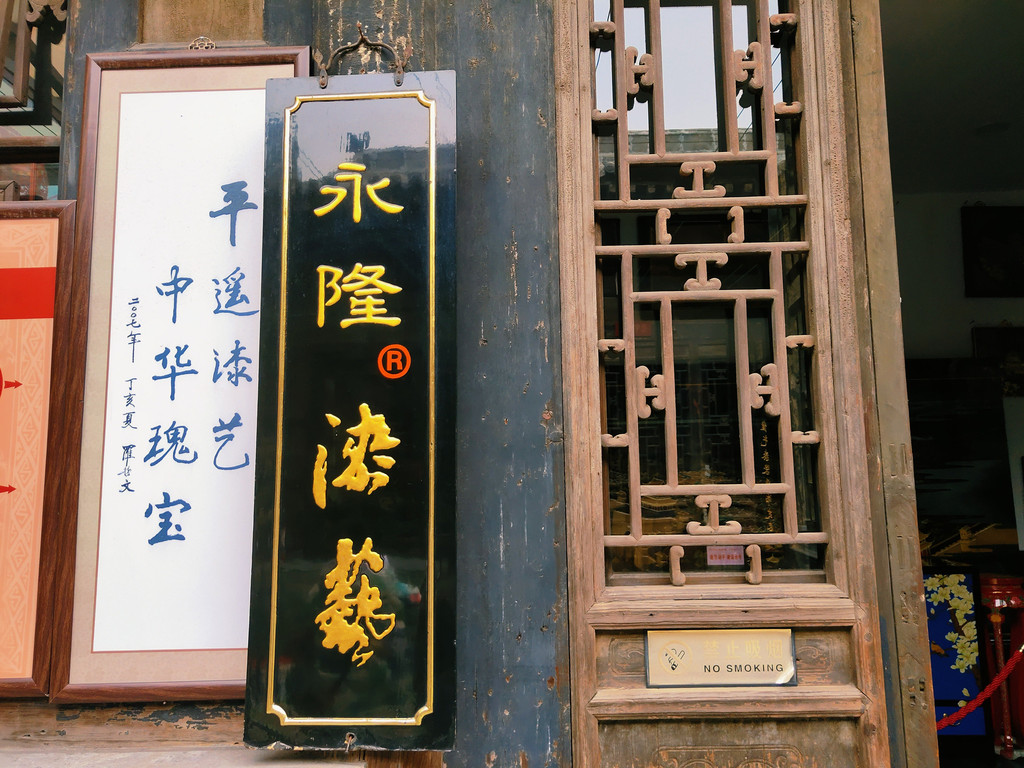 平遥漆艺
中华瑰宝
二〇〇七年 丁亥夏 罗世文
永隆®漆藝
禁止吸烟
NO SMOKING